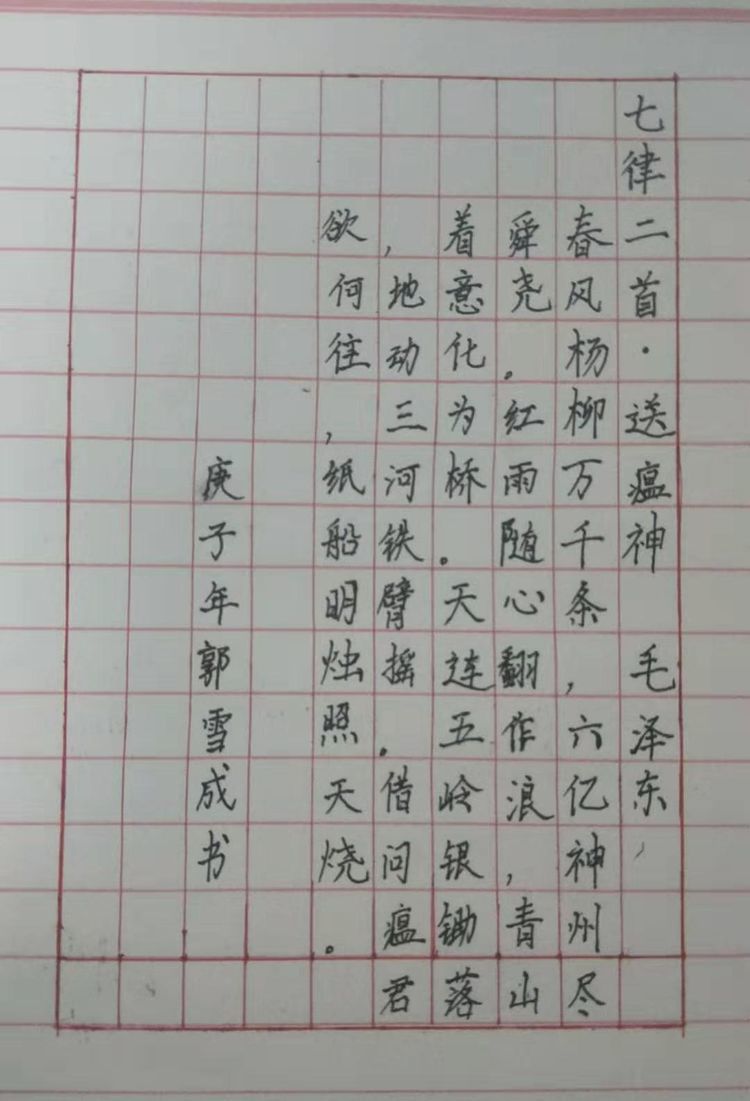 七律二首·送瘟神 毛泽东
春风杨柳万千条,六亿神州尽
舜尧。红雨随心翻作浪,青山
着意化为桥。天连五岭银锄落
,地动三河铁臂摇。借问瘟君
欲何往,纸船明烛照天烧。
庚子年郭雪成书